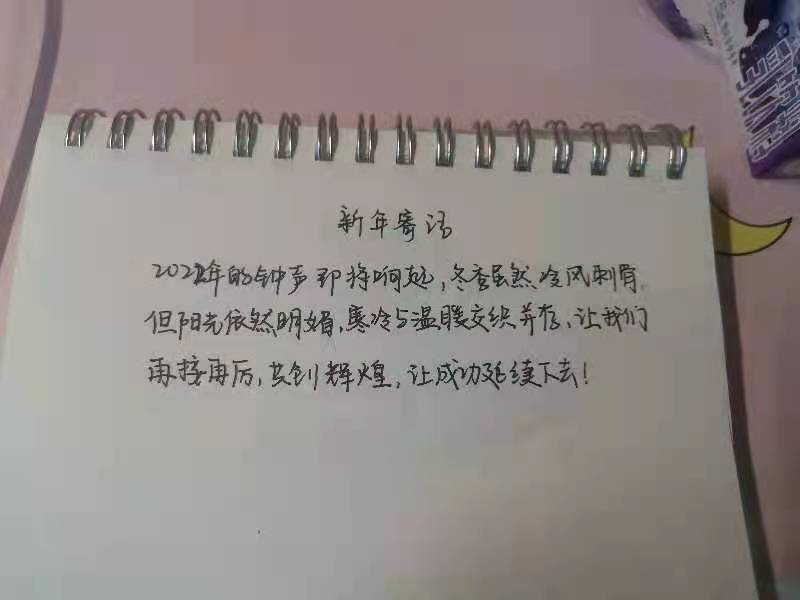 新年寄语
2022年的钟声即将响起,冬季虽然冷风刺骨,
但阳光依然明媚,寒冷与温暖交织并存、让我们
再接再厉,共创辉煌,让成功延续下去!